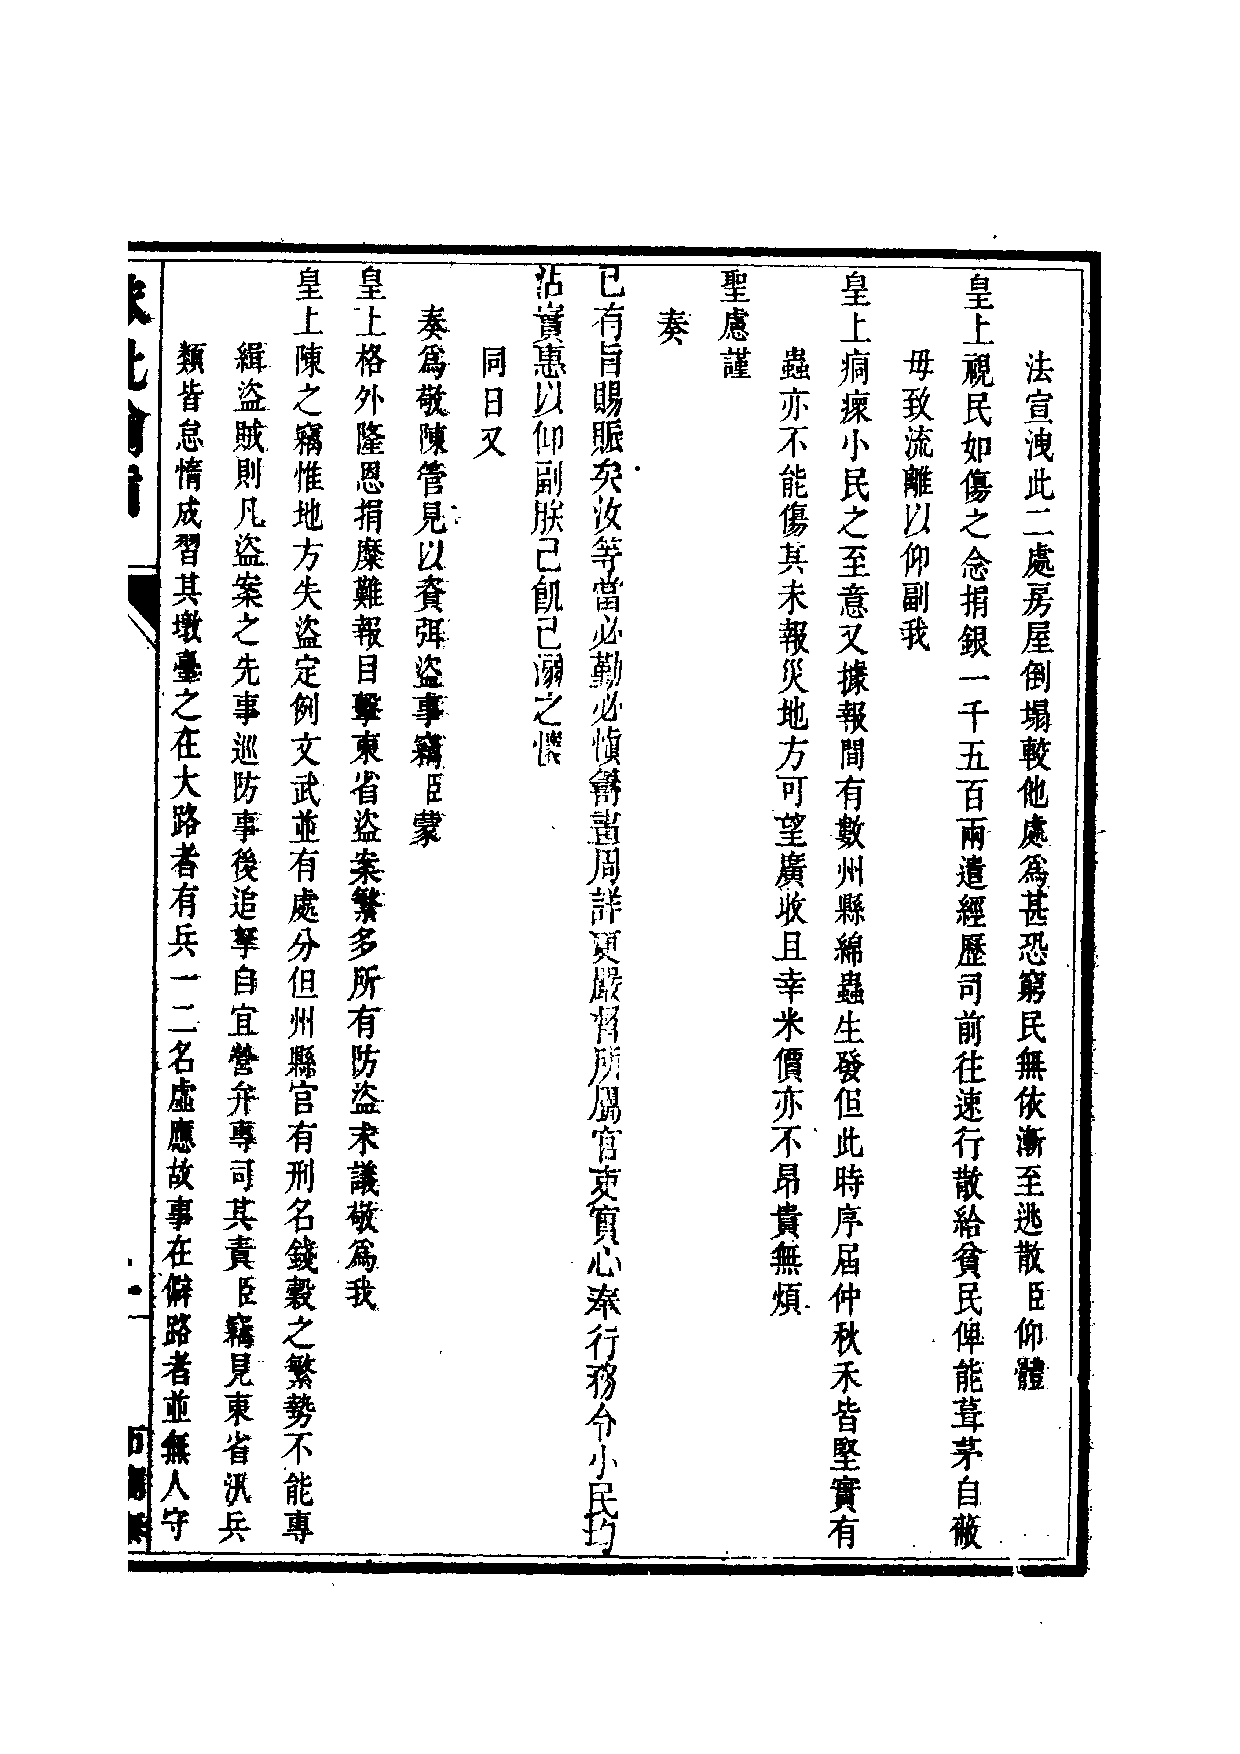 法宣洩此二處房屋倒塌較他處爲甚恐窮民無依漸至逃散臣仰體
皇上視民如傷之念捐銀一千五百兩遣經歷司前往速行散給貧民俾能葺茅自蔽
毋致流離以仰副我
皇上痌瘝小民之至意又據報間有數州縣綿蟲生發但此時序屆仲秋禾皆堅實有
蟲亦不能傷其未報災地方可望廣收且幸米價亦不昂貴無煩
聖慮謹
奏
已有旨賜賑矣汝等當必勤必慎籌畫周詳更嚴督所屬官吏實心奉行務令小民均
沾實惠以仰副朕己飢己溺之懷
同日又
奏爲敬陳管見以資弭盜事竊臣蒙
皇上格外隆恩捐糜難報目擊東省盜案繁多所有防盜末議敬爲我
皇上陳之竊惟地方失盜定例文武並有處分但州縣官有刑名錢穀之繁勢不能專
緝盜賊則凡盜案之先事巡防事後追拏自宜營弁專司其責臣竊見東省汛兵
類皆怠惰成習其墩臺之在大路者有兵一二名虛應故事在僻路者並無人守